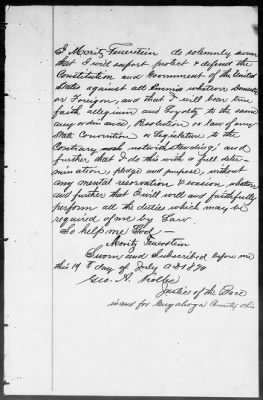 I Moritz Feuerstein do solemnly swear
that I will suport protect & defend the
Constitution and Government of the United
States against all Enemies whether Domestic
or Foreign, and that I will bear true
faith allegiance and Loyalty to the same
any ordinance, Resolution or law of any
State Convention or Legislature to the
Contrary notwithstanding; and
further that I do this with a full deter-
mination, pledge and purpose, without
any mental reservation, & evasion whatever
and further that I will well and faithfully
perform all the duties which may be
required of me by Law.
So help me God —
Moritz Feuerstein
Sworn and Subscribed before me
this 14th day of July AD 1890
Geo. A. Kolbe
Justice of the Peace
in and for Cuyahoga County Ohio